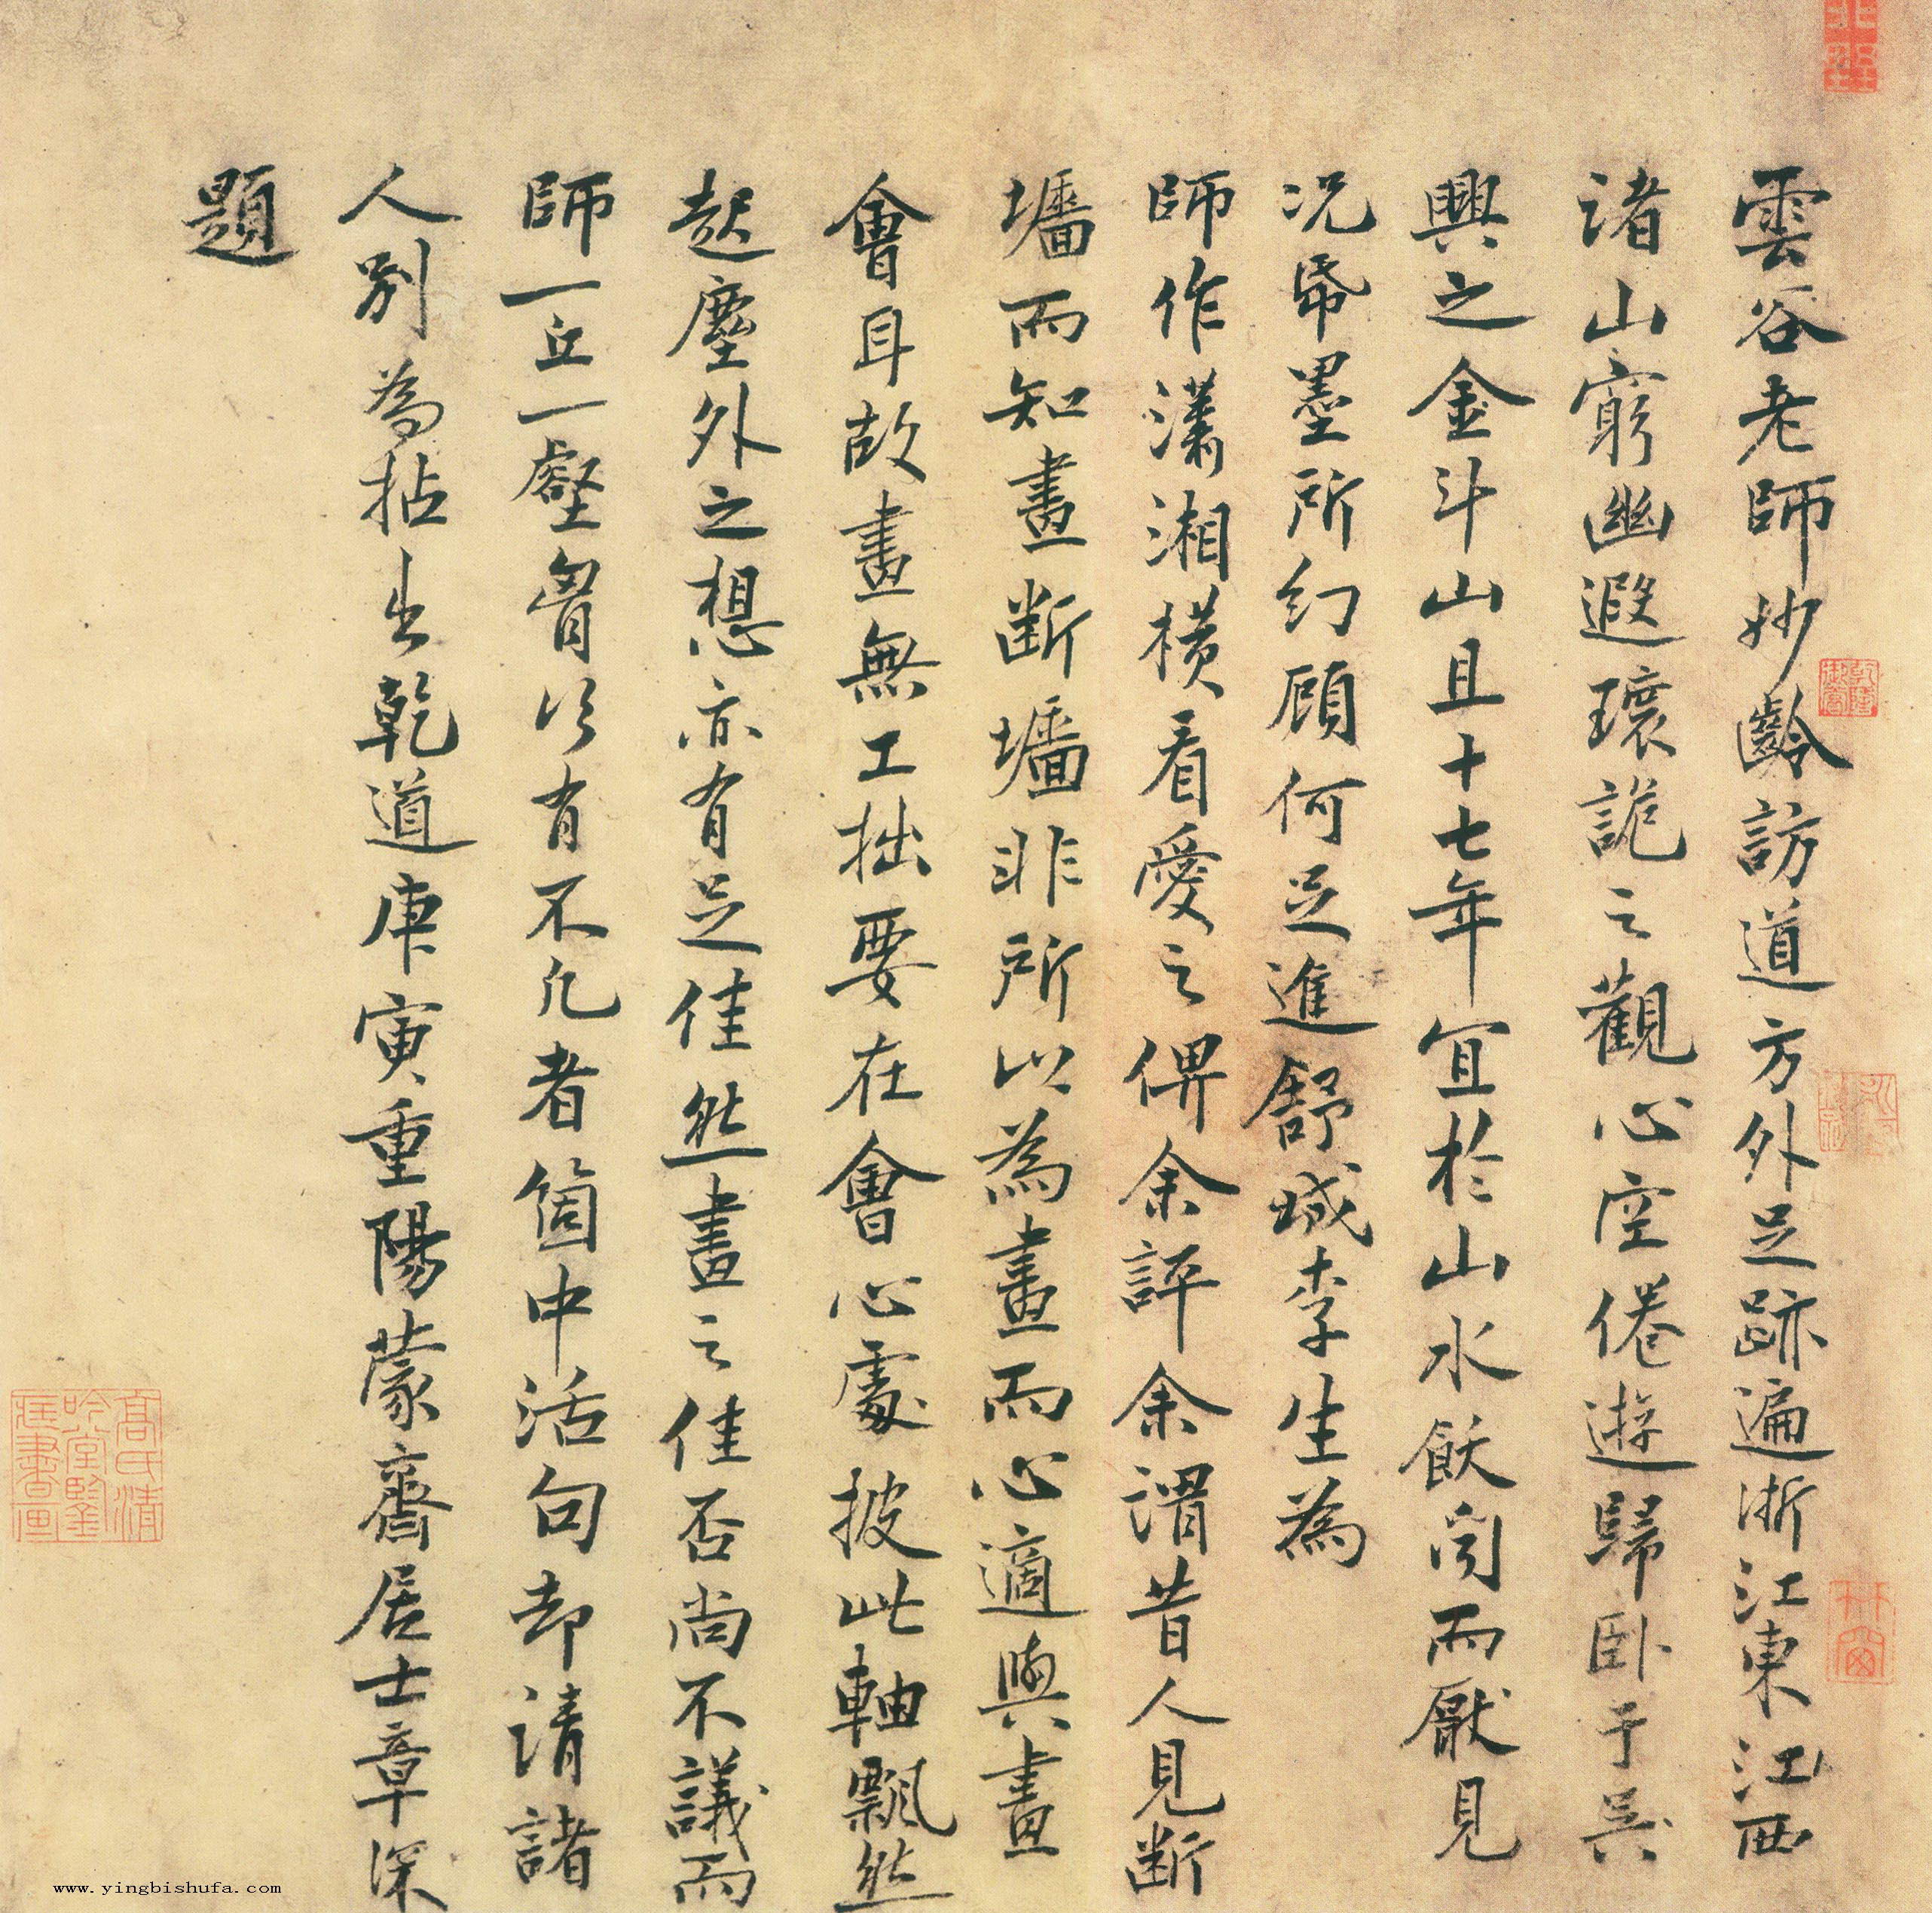 雲谷老師妙齡訪道方外足跡遍浙江東江西
诸山窮幽遐瓌詭之觀心空倦遊歸卧于吳
興之金斗山且十七年宜於山水飫聞而厭見
况帋墨所幻顧何足進舒城李生為
師作瀟湘横看愛之俾余評余謂昔人見断
墻而知畫断墻非所以為畫而心適與畫
會耳故畫無工拙要在會心處披此軸飄然
起塵外之想亦有足佳然畫之佳否尚不議而
師一丘一壑胷次有不凡者箇中活句却请諸
人别為拈出乾道庚寅重陽蒙齋居士章深
題
乾隆御賞
竹窗
高氏清吟堂鑒定書画
www.yingbishufa.com